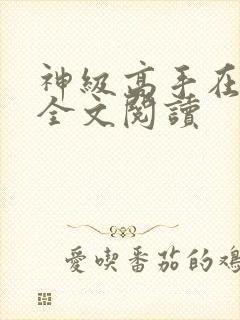 神級高手在
全文閱讀
愛喫番茄的鴻